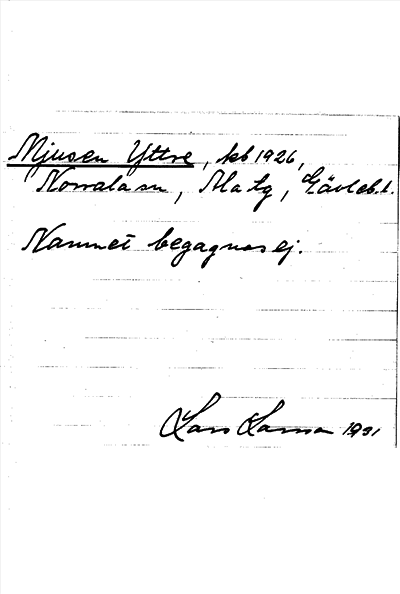 Mjusen Yttre, kb 1926,
Norrala sn, Matg, Gävleb. l.
Namnet begagnas ej.
Lars Larsson 1931